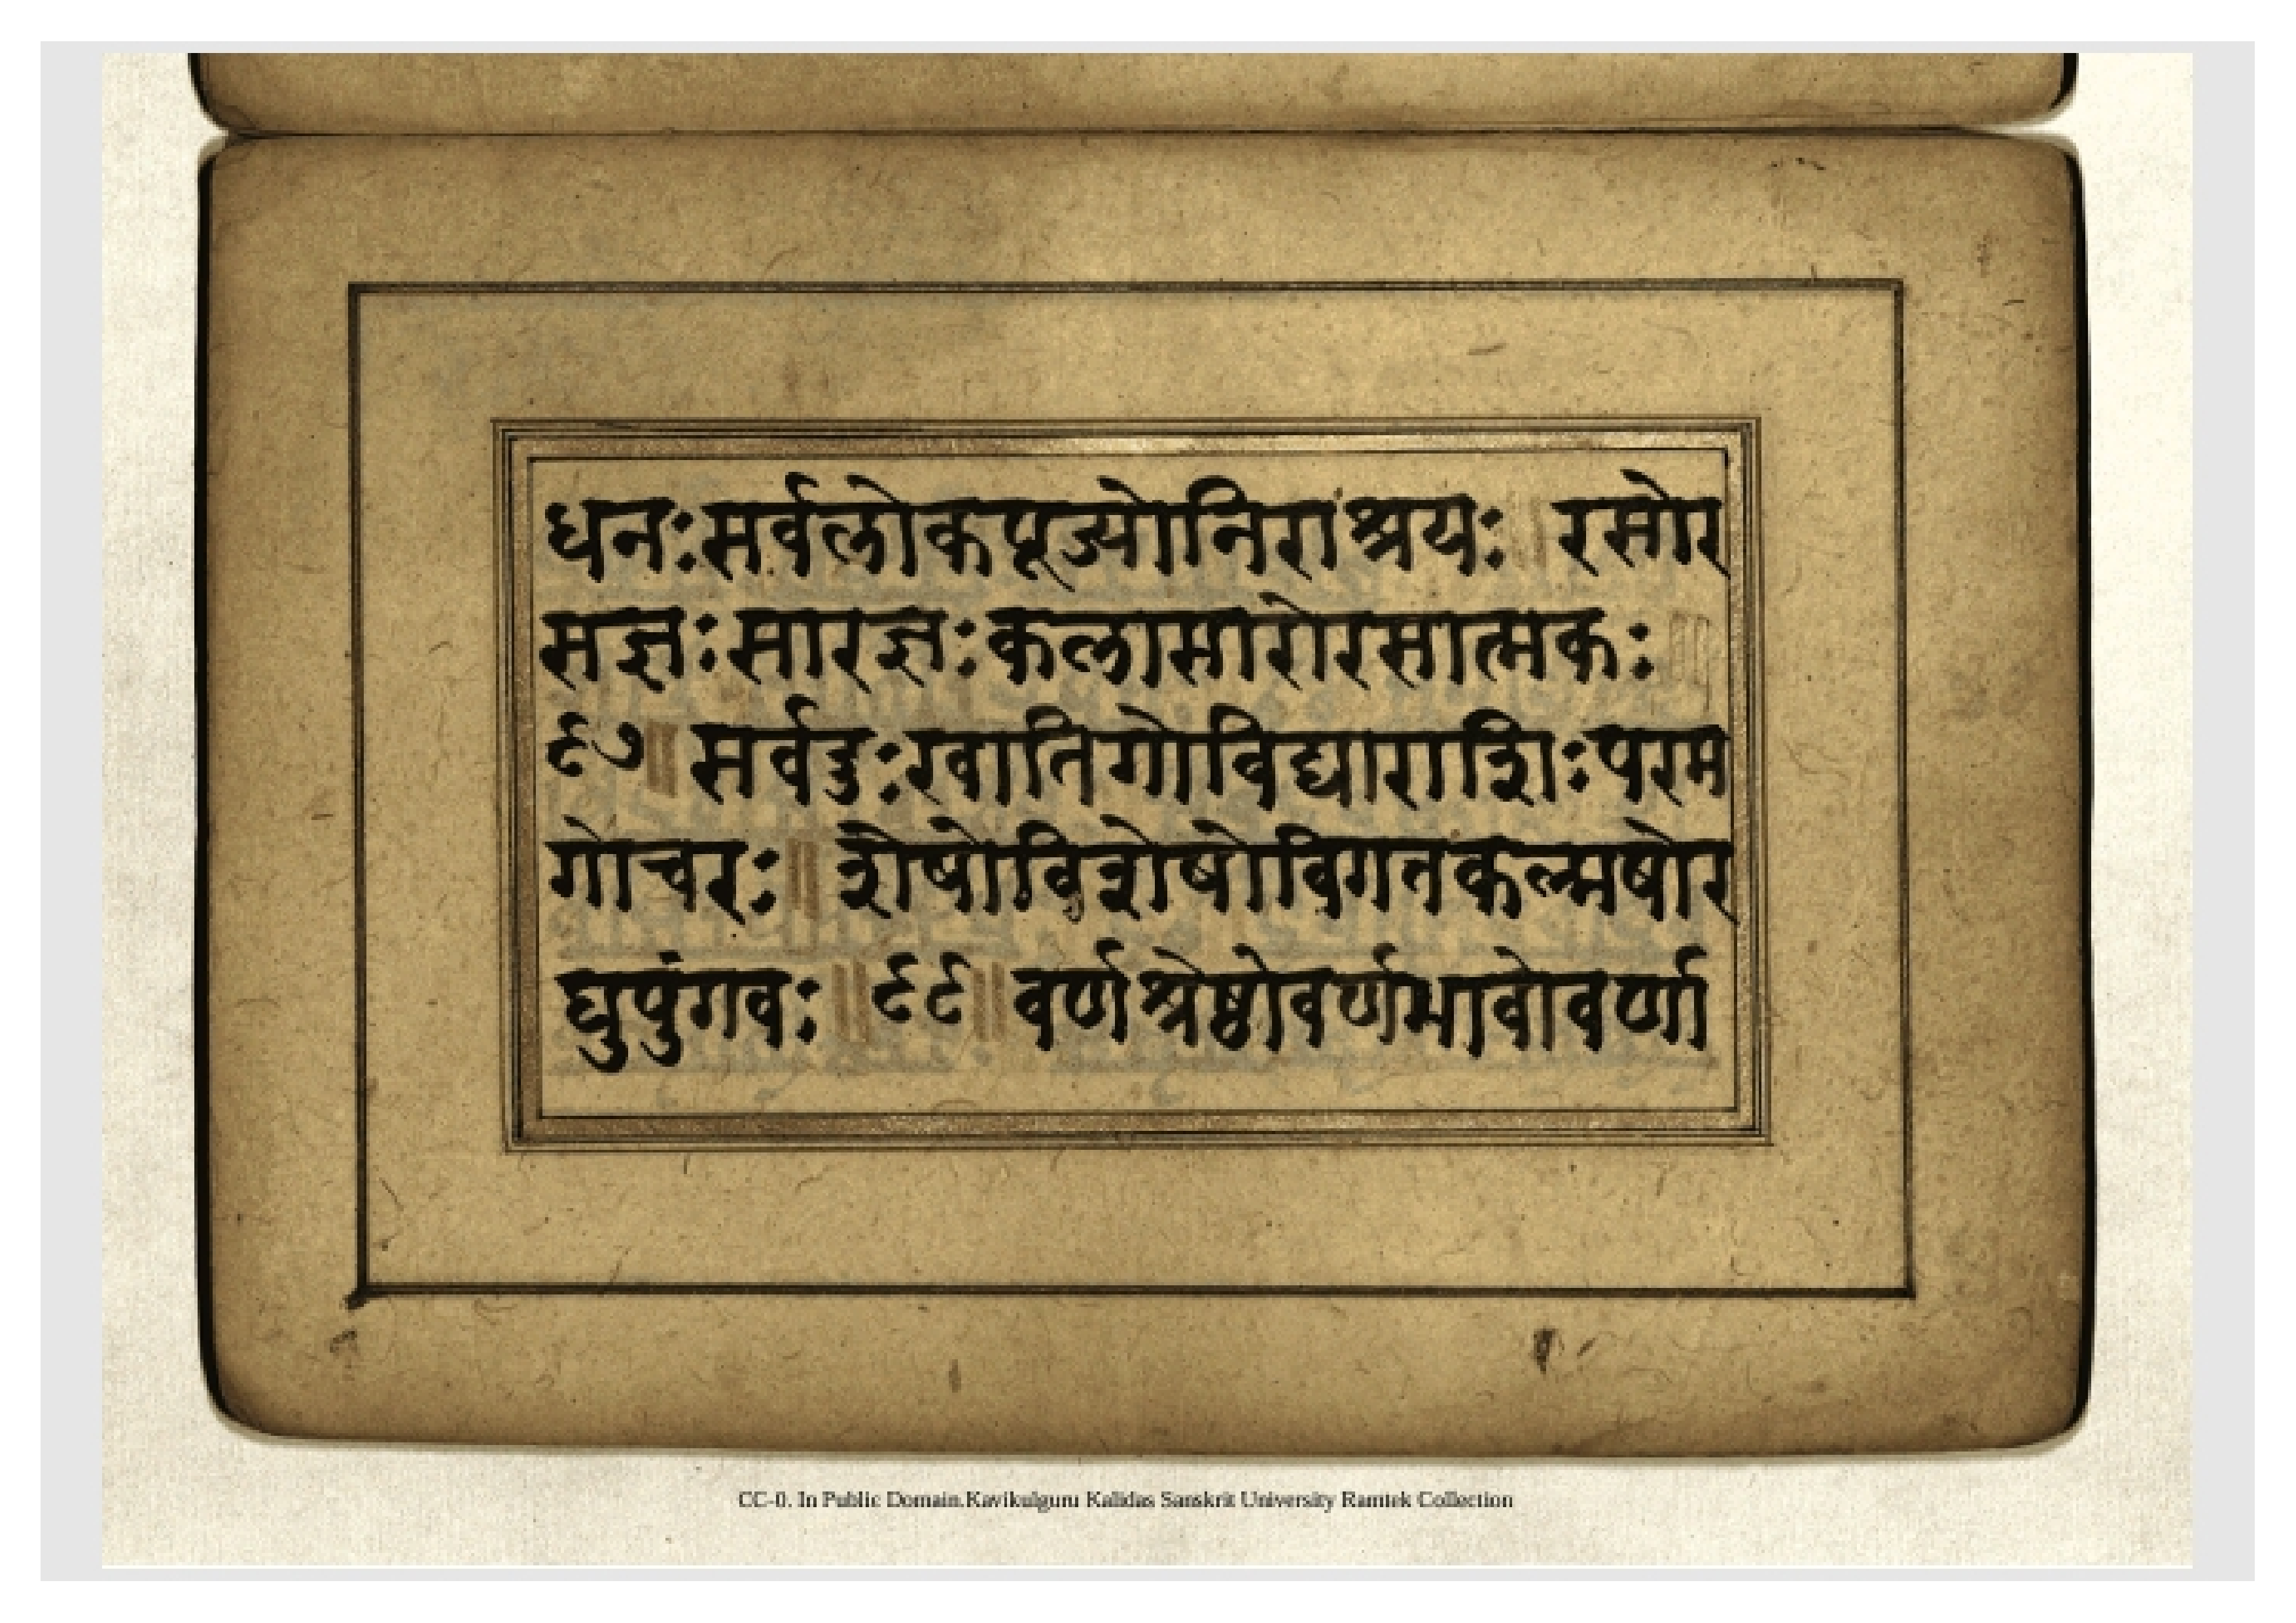 धनःसर्वलोकपूज्योनिराश्रयः ॥ रसोर
सज्ञःसारज्ञःकलासारोरसात्मकः ॥
९७॥ सर्वदुःखातिगोविद्याराशिःपरम
गोचरः॥ शेषोविशेषोविगतकल्मषोर
घुपुंगवः॥९९॥वर्णश्रेष्ठोवर्णभावोवर्णा
CC-0. In Public Domain.Kavikulguru Kalidas Sanskrit University Ramtek Collection